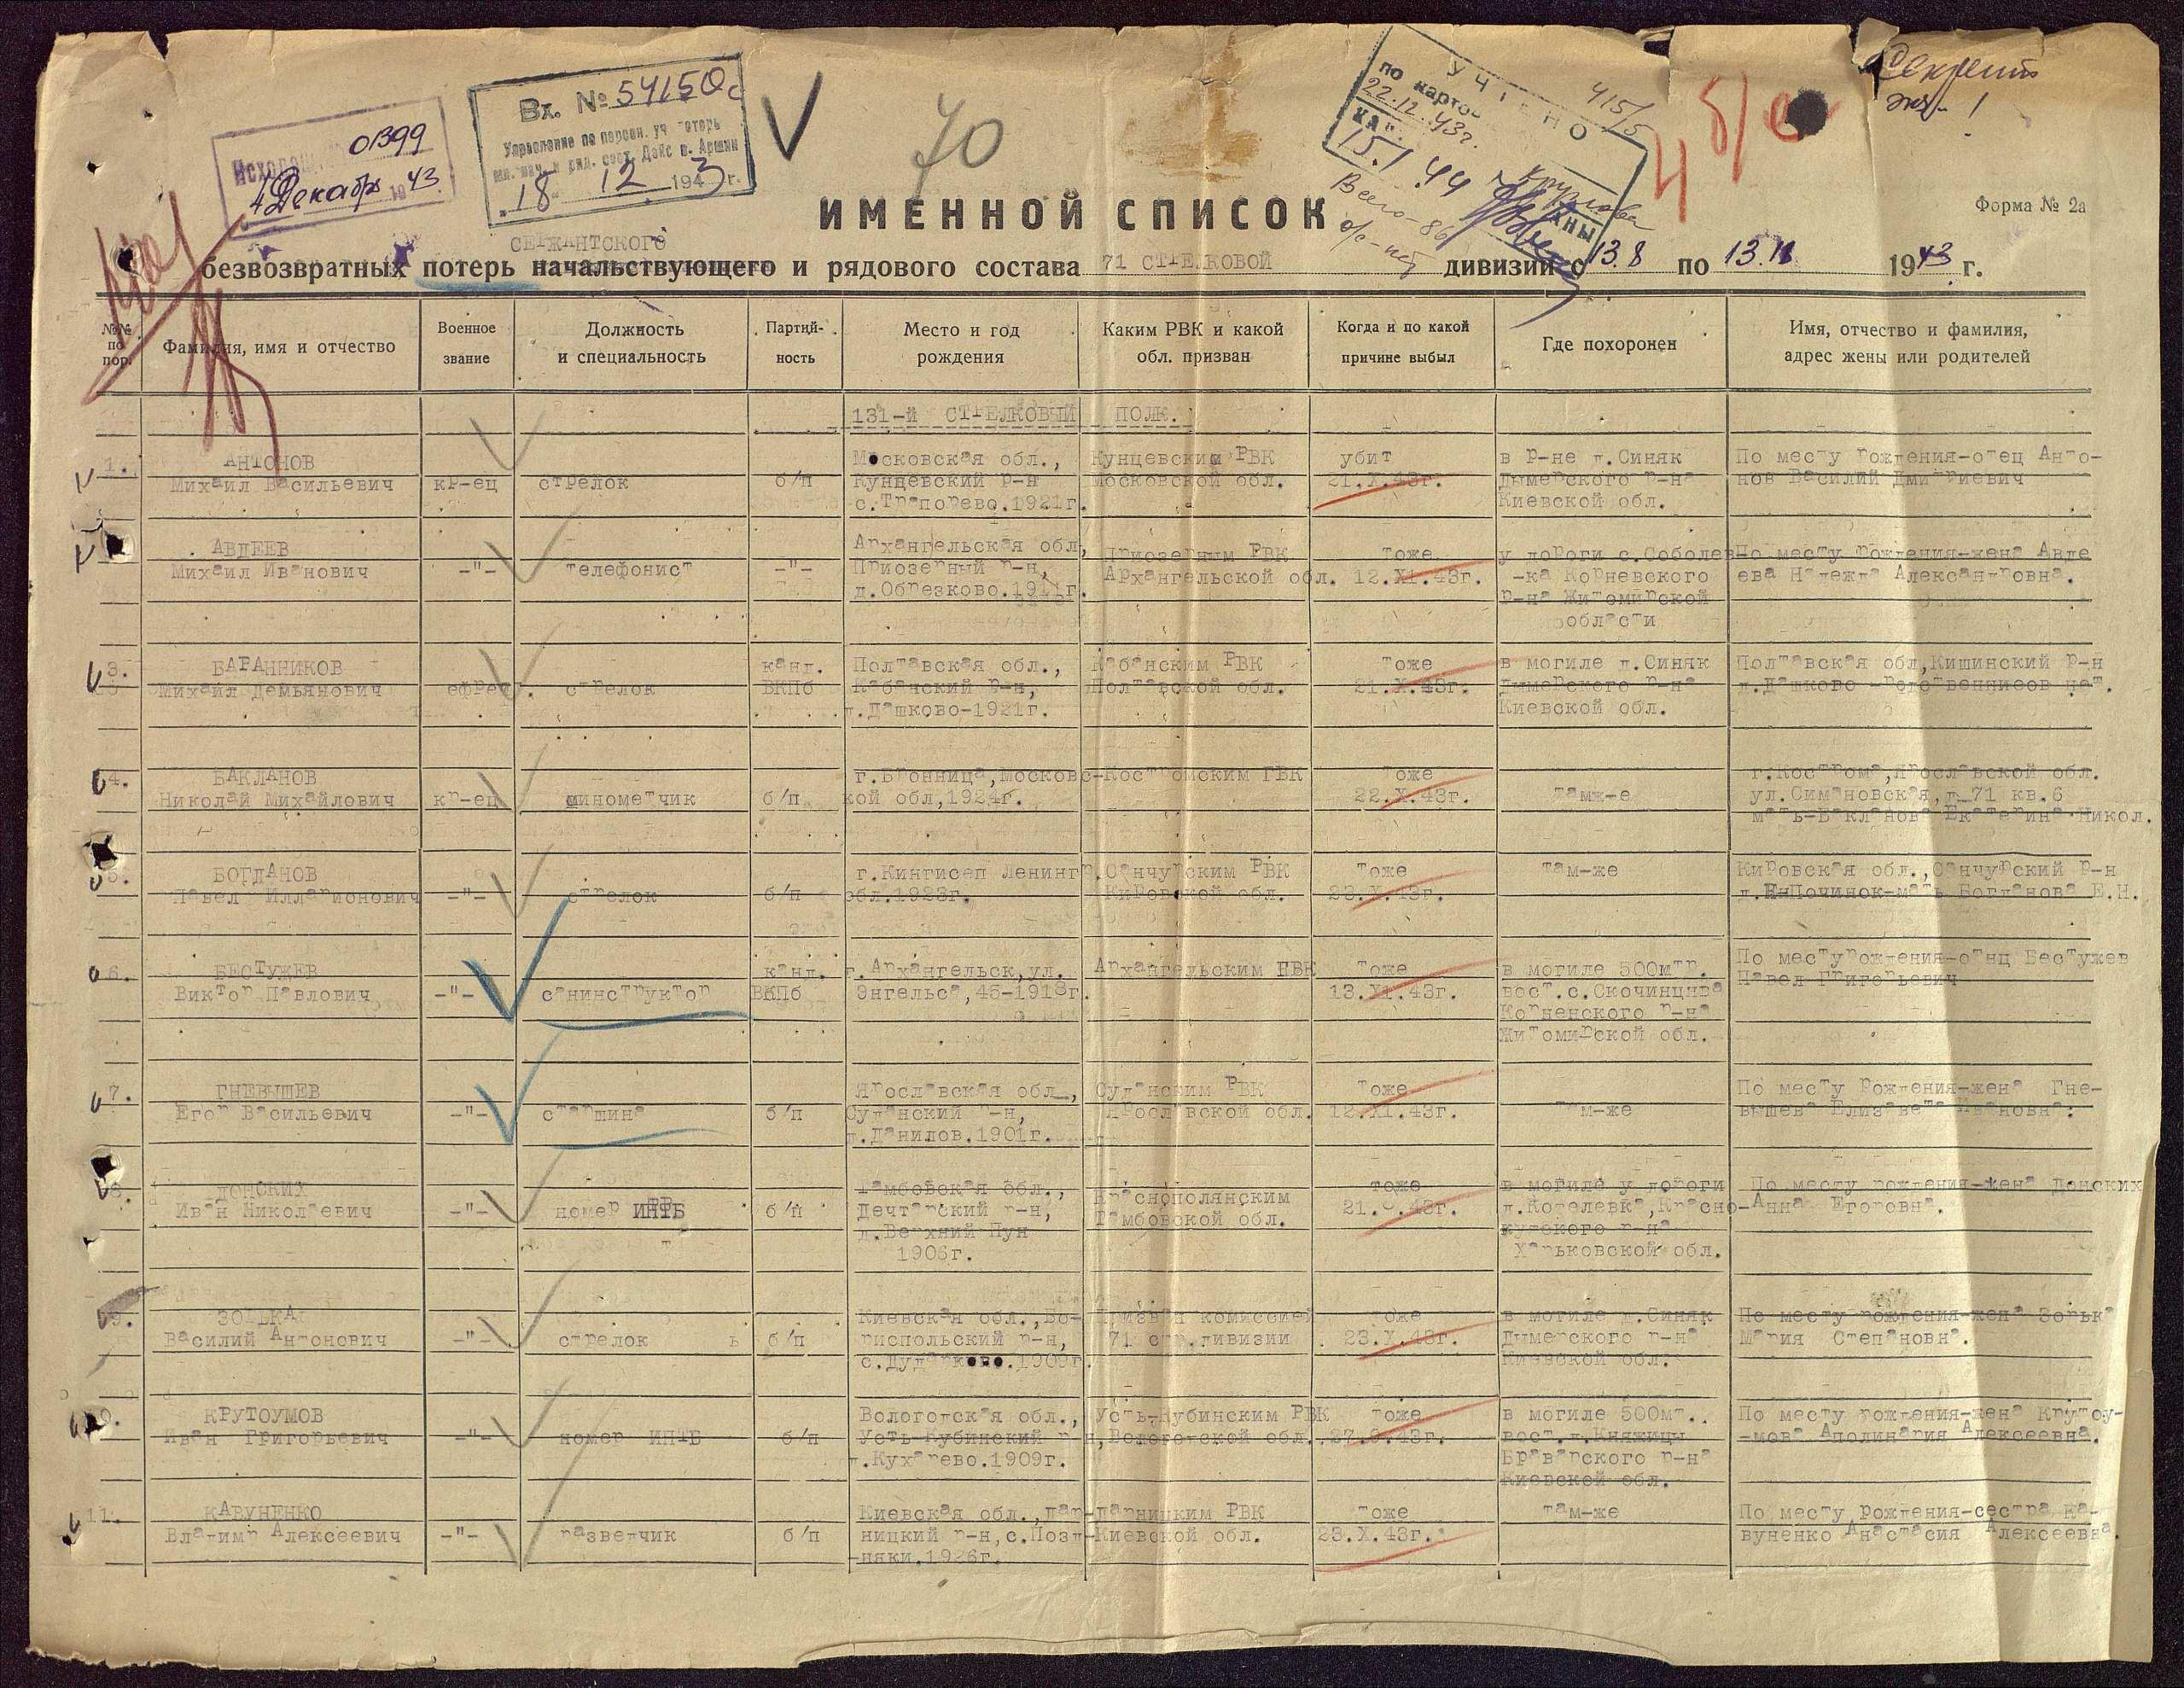 Секретно
экз. 1
415/5
01399
4 Декабр 1943.
Вх. № 54150с
Управление по персон. уч. потерь
мл. нач. и ряд. сост. Дейс в. Армии
18 12 1943 г.
70
УЧТЕНО
по карто
22.12.43г.
15.1.44
Всего-86
Форма № 2а
ИМЕННОЙ СПИСОК
СЕРЖАНТСКОГО
безвозвратных потерь начальствующего и рядового состава 71 СТРЕЛКОВОЙ дивизии с 13.8 по 13.11 1943 г.
№№ по пор.
Фамилия, имя и отчество
Военное звание
Должность и специальность
Партий-ность
Место и год рождения
Каким РВК и какой обл. призван
Когда и по какой причине выбыл
Где похоронен
Имя, отчество и фамилия, адрес жены или родителей
131-й СТРЕЛКОВЫЙ ПОЛК.
1. АНТОНОВ Московская обл., Кунцевским РВК убит в р-не д.Синяк По месту рождения-отец Анто-
Михаил Васильевич кр-ец стрелок б/п Кунцевский р-н Московской обл. 21.X.43г. Дымерского р-на нов Василий Дмитриевич
с.Трапорево.1921г. Киевской обл.
АВДЕЕВ Архангельская обл, Приозерным РВК тоже у дороги с.Соболев По месту рождения-жена Авде
Михаил Иванович -"- телефонист -"- Приозерный р-н, Архангельской обл. 12.XI.43г. -ка Корневского ева Надежда Александровна.
д.Обрезково.1911г. р-на Житомирской
области
3. БАРАННИКОВ канд. Полтавская обл., Кабанским РВК тоже в могиле д.Синяк Полтавская обл,Кишинский р-н
Михаил Демьянович ефрейт. стрелок ВКПб Кабанский р-н, Полтавской обл. 21.X.43г. Дымерского р-на д.Дашково -родственников нет.
д.Дашково-1921г. Киевской обл.
4. БАКЛАНОВ г.Бронница,Московс- Костромским ГВК тоже г.Кострома,Ярославской обл.
Николай Михайлович кр-ец минометчик б/п кой обл,1924г. 22.X.43г. тамж-е ул.Симановская,д.71 кв.6
мать-Бакланова Екатерина Никол.
5. БОГДАНОВ г.Кингисеп Ленингр. Санчурским РВК тоже там-же Кировская обл.,Санчурский р-н
Павел Илларионович -"- стрелок б/п обл.1923г. Кировской обл. 23.X.43г. д.ЕнПочинок-мать Богданова Е.Н.
6. БЕСТУЖЕВ канд. г.Архангельск,ул. Архангельским ГВК тоже в могиле 500мтр. По местурождения-отнц Бестужев
Виктор Павлович -"- санинструктор ВКПб Энгельса,45-1918г. 13.XI.43г. вост.с.Скочинцива Павел Григорьевич
Корненского р-на
Житомирской обл.
7. ГНЕВЫШЕВ Ярославская обл., Суданским РВК тоже По месту рождения-жена Гне-
Егор Васильевич -"- старшина б/п Суданский р-н, Ярославской обл. 12.XI.43г. там-же вышева Елизавета Ивановна.
д.Данилов.1901г.
8. ДОНСКИХ Тамбовская обл., Краснополянским тоже в могиле у дороги По месту рождения-жена Донских
Иван Николаевич -"- номер ИПТБ б/п Дечтарский р-н, Тамбовской обл. 21. .43г. д.Котелевка,Красно- Анна Егоровна.
д.Верхний Пун кутского р-на
1906г. Харьковской обл.
9. ЗОРЬКА Киевская обл.,Бо- Призван комиссией тоже в могиле д.Синяк По месту рождения-жена Зорька
Василий Антонович -"- стрелок б/п риспольский р-н, 71 стр.дивизии 23.X.43г. Дымерского р-на Мария Степановна.
с.Дударково.1909г. Киевской обл.
10. КРУТОУМОВ Вологотская обл., Усть-Кубинским РВК тоже в могиле 500мт. По месту рождения-жена Крутоу-
Иван Григорьевич -"- номер ИПТБ б/п Усть-Кубинский р-н, Вологотской обл. 27. .43г. вост.д.Княжицы -мова Аполинария Алексеевна.
д.Кухарево.1909г. Браварского р-на
Киевской обл.
11. КАВУНЕНКО Киевская обл.,Дар- Дарницким РВК тоже там-же По месту рождения-сестра Ка-
Владимир Алексеевич -"- разведчик б/п ницкий р-н,с.Позд- Киевской обл. 23.X.43г. вуненко Анастасия Алексеевна.
-няки.1926г.